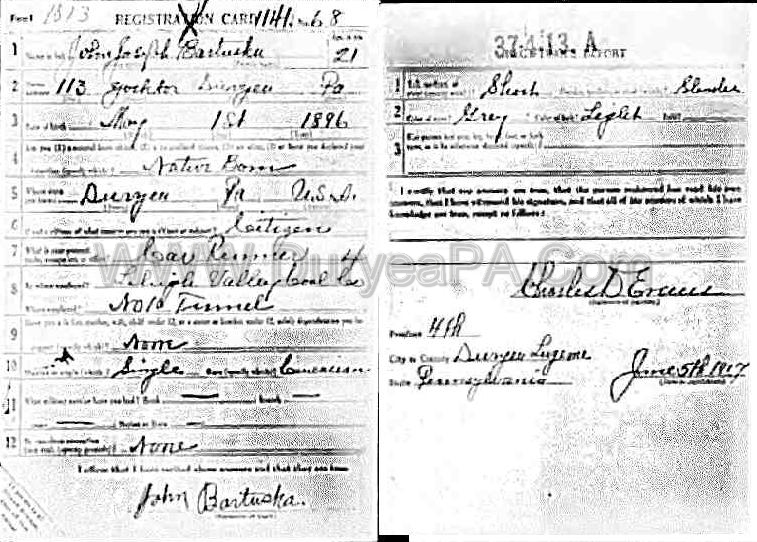 Form 1 1813 REGISTRATION CARD 1141 No. 68
1 Name in full John Joseph Bartuska Age, in yrs. 21
2 Home address 113 Duryea Pa
3 Date of birth May 1st 1896
4 Are you (1) a natural born citizen, (2) a naturalized citizen, (3) an alien, (4) or have you declared your intention (specify which)? Native Born
5 Where were you born? Duryea Pa U.S.A.
6 If not a citizen, of what country are you a citizen or subject? Citizen
7 What is your present trade, occupation, or office? Car Runner 4
8 By whom employed? Lehigh Valley Coal Co
Where employed? No 1 Tunnel
9 Have you a father, mother, wife, child under 12, or a sister or brother under 12, solely dependent on you for
support (specify which)? None
10 Married or single (which)? Single Race (specify which)? Caucasian
11 What military service have you had? Rank — branch —
years — Nation or State —
12 Do you claim exemption from draft (specify grounds)? None
I affirm that I have verified above answers and that they are true
John Bartuska
37-4-13. A
REGISTRAR'S REPORT
1 Short Slender
2 Color of eyes? Grey Color of hair? Light Bald?
3 Has person lost arm, leg, hand, foot, or both
eyes, or is he otherwise disabled (specify)?
I certify that my answers are true, that the person registered has read his own
answers, that I have witnessed his signature, and that all of his answers of which I have
knowledge are true, except as follows:
Charles D. Evans
Precinct 4th
City or County Duryea Luzerne
State Pennsylvania June 5th 1917
www.DuryeaPA.Com